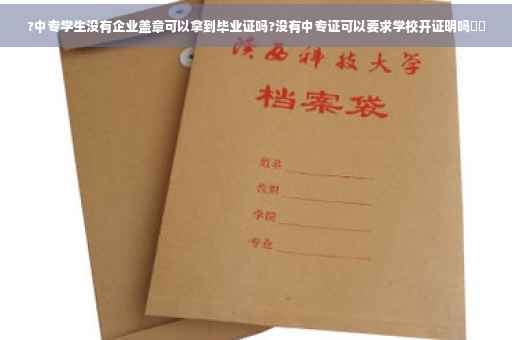 ?中专学生没有企业盖章可以拿到毕业证吗?没有中专证可以要求学校开证明吗
陕西科技大学
档案袋
姓名
学院
专业